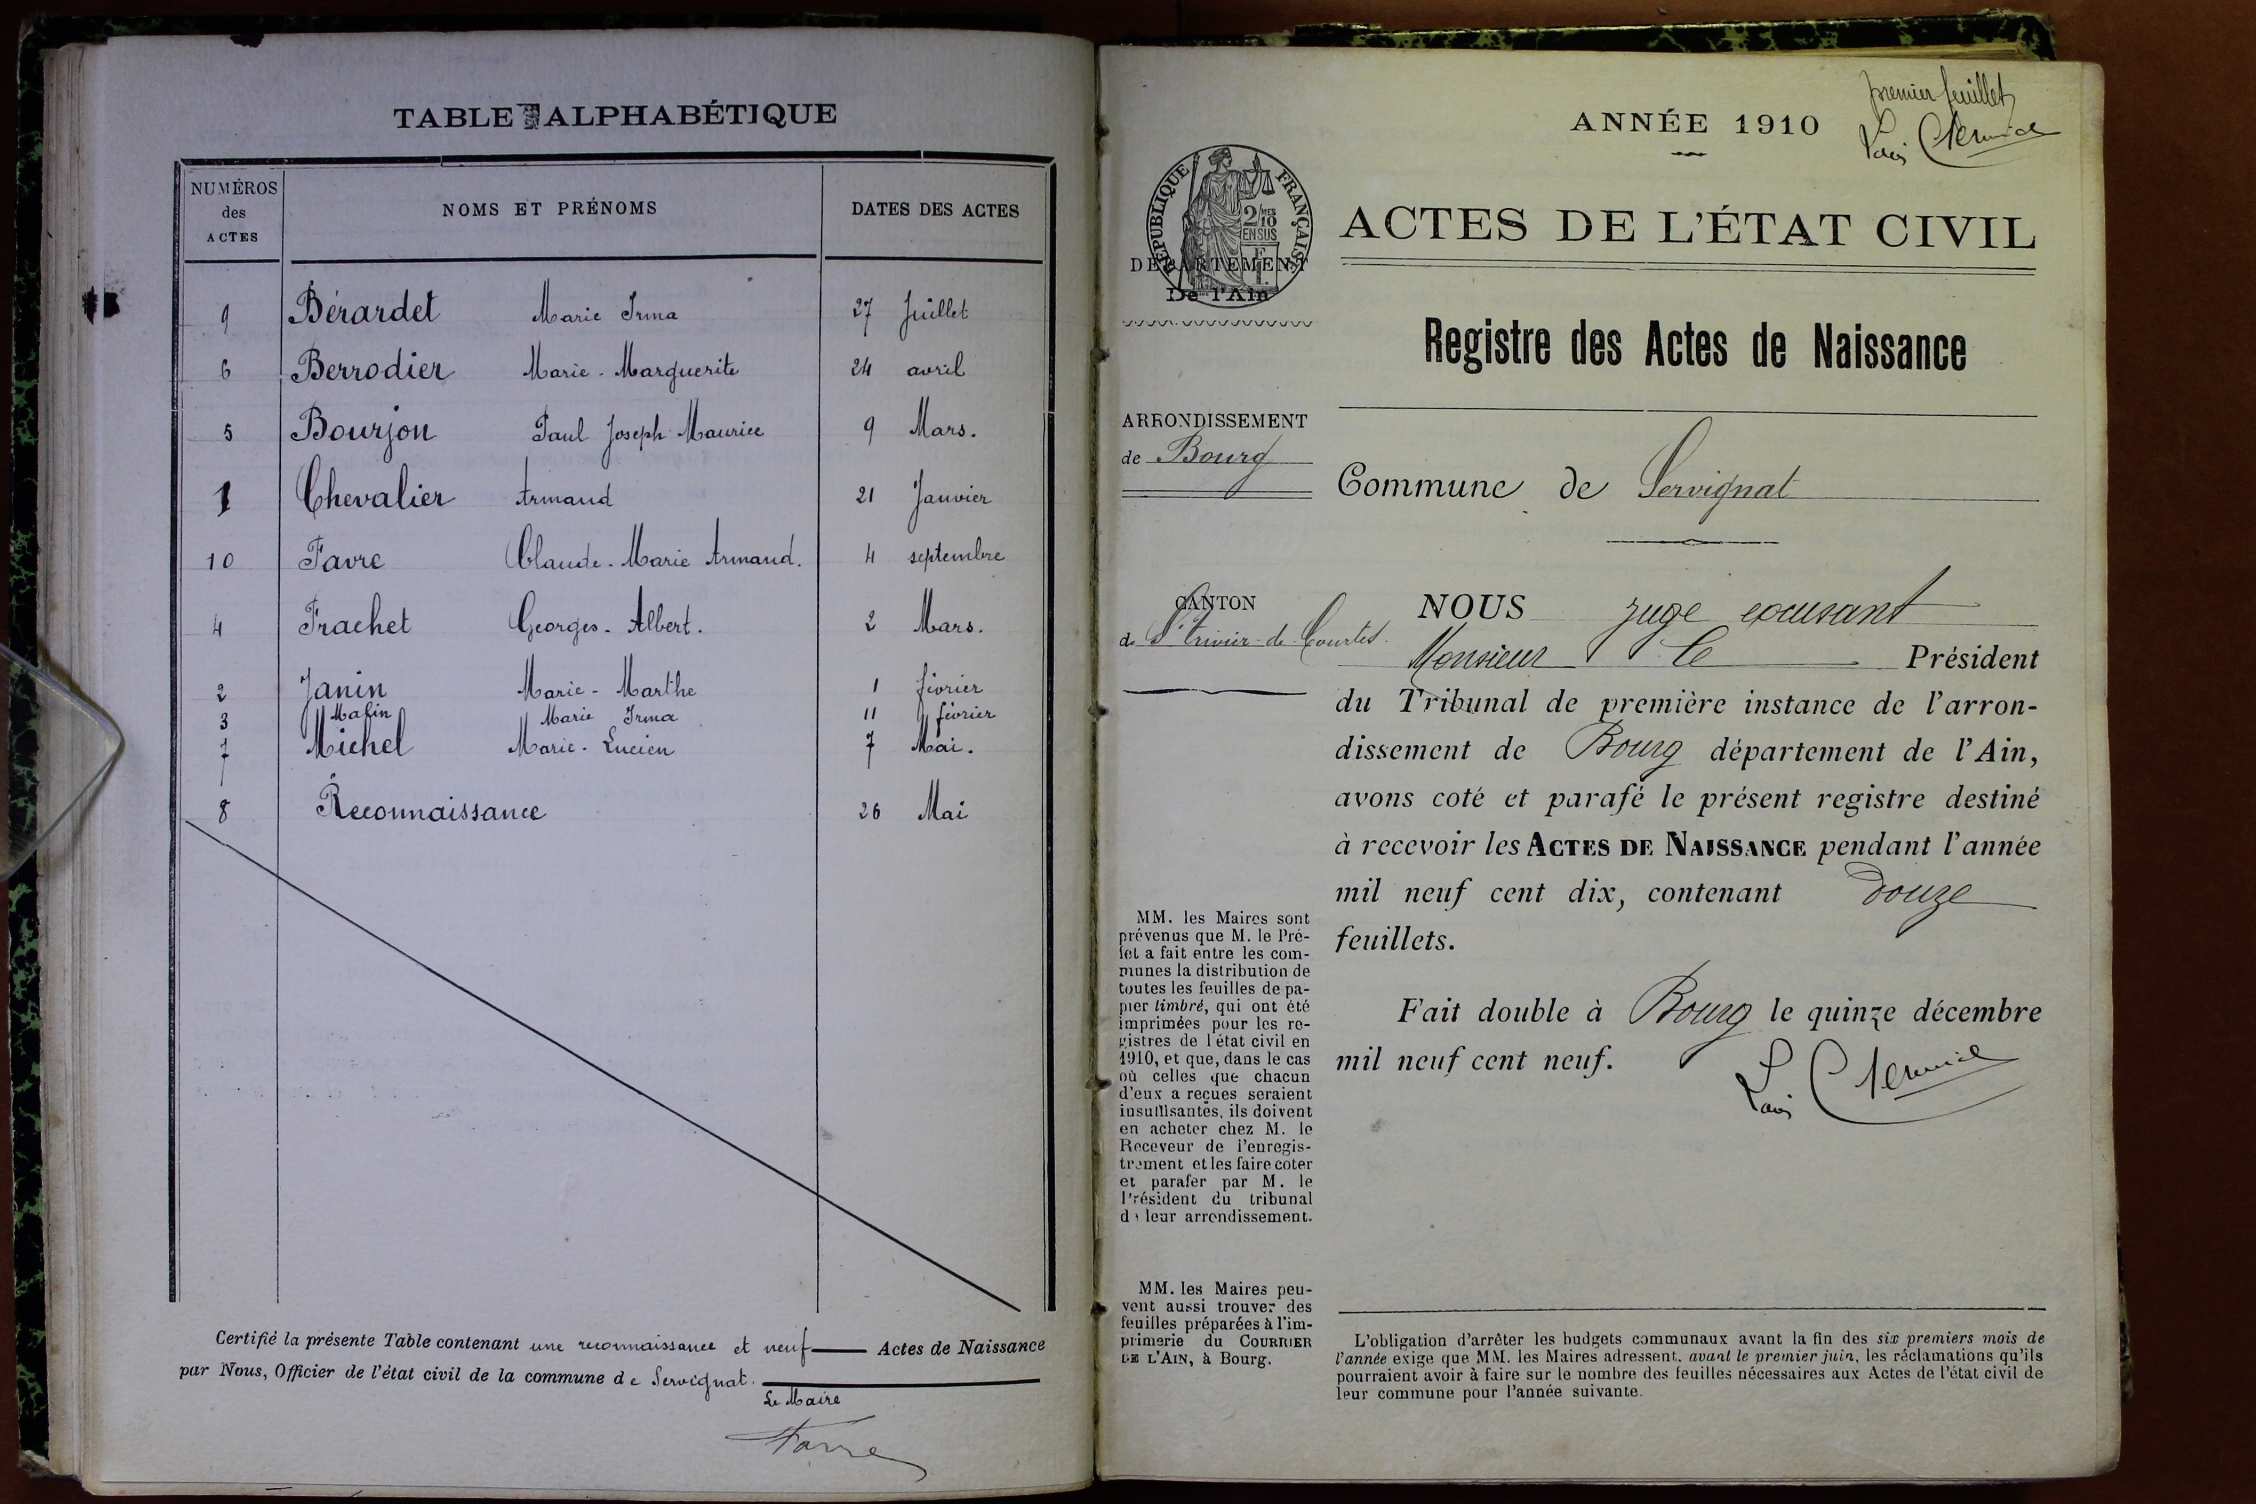 TABLE ALPHABÉTIQUE
NUMÉROS des ACTES NOMS ET PRÉNOMS DATES DES ACTES
9 Bérardet Marie Irma 27 Juillet
6 Berrodier Marie - Marguerite 24 avril
5 Bourjon Paul Joseph Maurice 9 Mars.
1 Chevalier Armand 21 Janvier
10 Favre Claude - Marie Armand. 4 septembre
4 Frachet Georges - Albert. 2 Mars.
2 Janin Marie - Marthe 1 février
3 Marie Irma 11 février
7 Michel Marie - Lucien 7 Mai.
8 Reconnaissance 26 Mai
Certifié la présente Table contenant une reconnaissance et neuf Actes de Naissance
par Nous, Officier de l'état civil de la commune de Servignat.
Le Maire
Favre
premier feuillet
ANNÉE 1910
RÉPUBLIQUE FRANÇAISE
2/10 MES
EN SUS
ACTES DE L'ÉTAT CIVIL
DÉPARTEMENT
De l'Ain
Registre des Actes de Naissance
ARRONDISSEMENT
de Bourg
Commune de Servignat
CANTON
de St Trivier-de-Courtes.
NOUS juge excusant
Monsieur le Président
du Tribunal de première instance de l'arron-
dissement de Bourg département de l'Ain,
avons coté et parafé le présent registre destiné
à recevoir les ACTES DE NAISSANCE pendant l'année
mil neuf cent dix, contenant douze
feuillets.
Fait double à Bourg le quinze décembre
mil neuf cent neuf.
MM. les Maires sont
prévenus que M. le Pré-
fet a fait entre les com-
munes la distribution de
toutes les feuilles de pa-
pier timbré, qui ont été
imprimées pour les re-
gistres de l'état civil en
1910, et que, dans le cas
où celles que chacun
d'eux a reçues seraient
insuffisantes, ils doivent
en acheter chez M. le
Receveur de l'enregis-
trement et les faire coter
et parafer par M. le
Président du tribunal
de leur arrondissement.
MM. les Maires peu-
vent aussi trouver des
feuilles préparées à l'im-
primerie du COURRIER
DE L'AIN, à Bourg.
L'obligation d'arrêter les budgets communaux avant la fin des six premiers mois de
l'année exige que MM. les Maires adressent, avant le premier juin, les réclamations qu'ils
pourraient avoir à faire sur le nombre des feuilles nécessaires aux Actes de l'état civil de
leur commune pour l'année suivante.